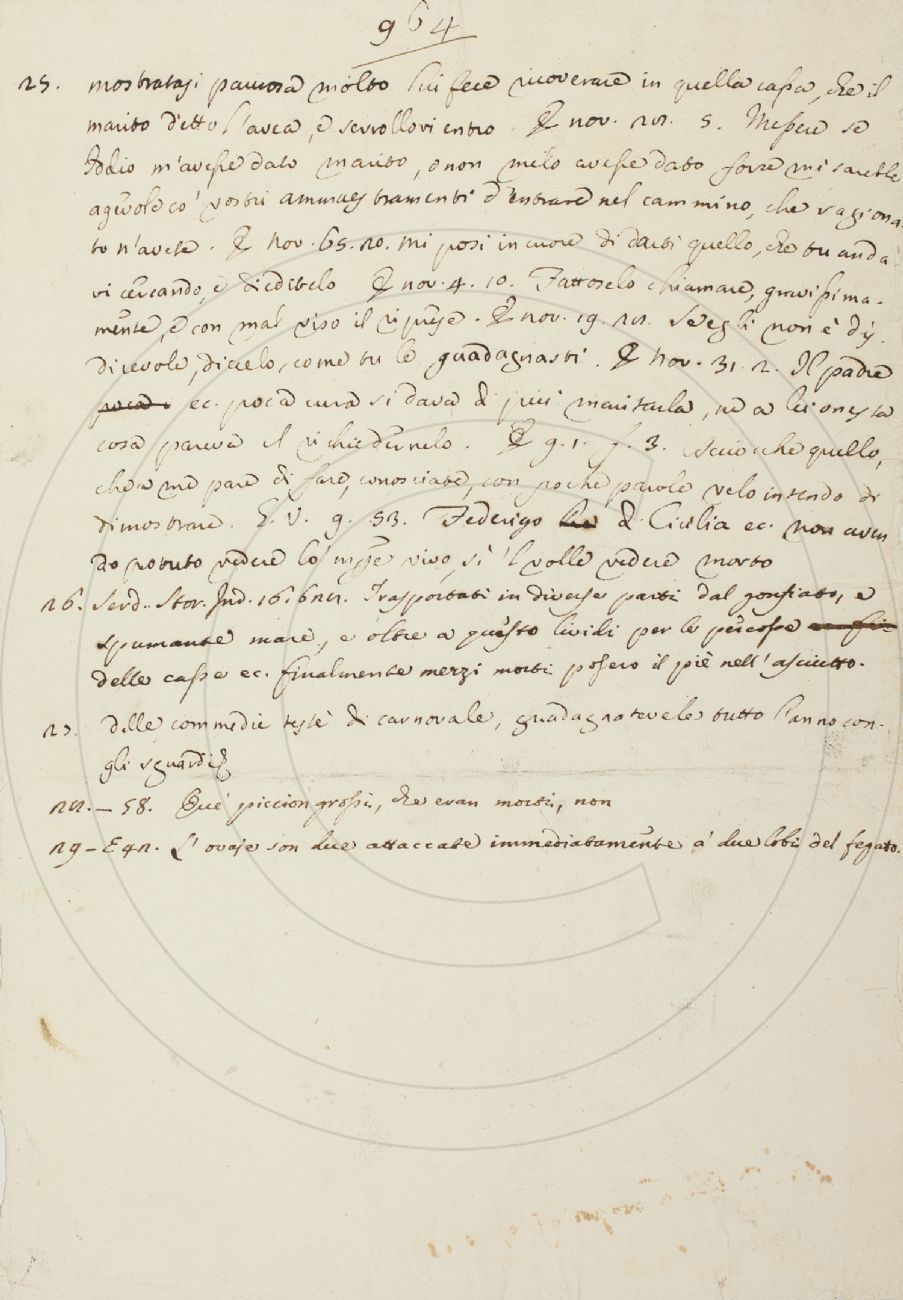 964
25. mostratasi paurosa molto lui fece ricoverare in quella cassa, che il
marito detto l'avea, e serrollovi entro. E nov. 28. 5. Messere se
Iddio m'avesse dato marito, o non melo avesse dato forse mi sarebbe
agevole co' vostri ammaestramenti d'entrare nel cammino, che ragiona-
to n'avete. E nov. 65. 20. mi posi in cuore di darti quello, che tu anda-
vi cercando, e dieditelo E nov. 4. 10. Fattoselo chiamare, gravissima-
mente, e con mal viso il riprese. E nov. 19. 28. Se egli non è dis-
dicevole, dicelo, come tu le guadagnasti. E nov. 31. 2. Il padre
poca ec. poca cura si dava di più maritarla, nè a lei onesta
cosa pareva il richiedernelo. E g. 1. f. 3. Acciocchè quello,
che a me pare di fare, conosciate, con poche parole velo intendo di
dimostrare. G. V. 9. 53. Federigo di Cicilia ec. non aven
do potuto vedere lo 'mpre vivo, sì 'l volle vedere morto
26. Serd. Stor. Ind. 16. 628. Trasportati in diverse parti dal gonfiato, e
spumante mare, e oltre a questo lividi per le percosse
delle casse ec. finalmente mezzi morti posero il piè nell'asciutto.
27. Delle commedie testè di carnovale, guadagnatevele tutto l'anno con-
gli sguardi
28. – 58. Que' piccion grossi, che eran morti, non
29 – E 42. L'ovaje son due attaccate immediatamente a' due lobi del fegato.